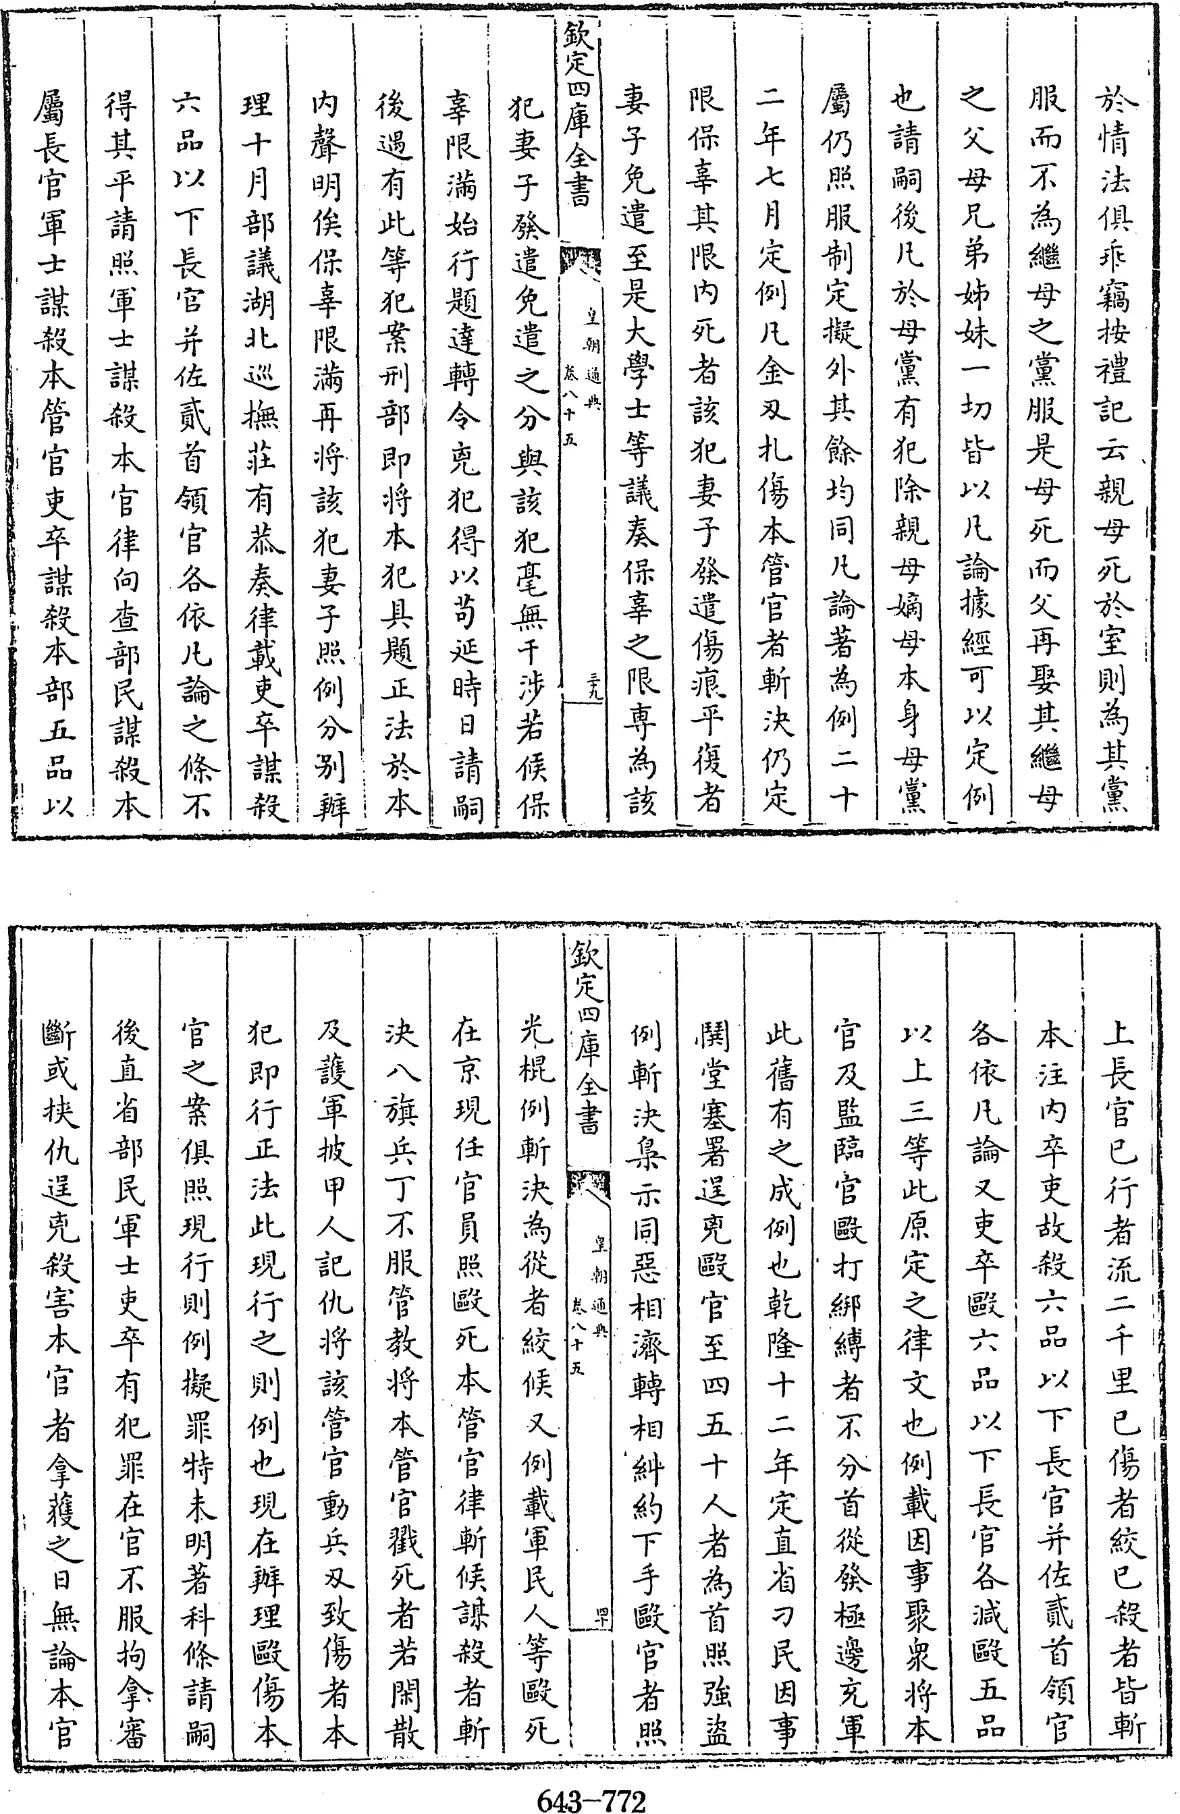 於情法俱乖竊按禮記云親母死於室則為其黨
服而不為繼母之黨服是母死而父再娶其繼母
之父母兄弟姊妹一切皆以凡論據經可以定例
也請嗣後凡於母黨有犯除親母嫡母本身母黨
屬仍照服制定擬外其餘均同凡論著為例二十
二年七月定例凡金刃扎傷本管官者斬決仍定
限保辜其限内死者該犯妻子發遣傷痕平復者
妻子免遣至是大學士等議奏保辜之限専為該
欽定四庫全書
皇朝通典
卷八十五
三九
犯妻子發遣免遣之分與該犯毫無干涉若候保
辜限滿始行題達轉令兇犯得以苟延時日請嗣
後遇有此等犯案刑部即将本犯具題正法於本
内聲明俟保辜限滿再将該犯妻子照例分别辦
理十月部議湖北巡撫莊有恭奏律載吏卒謀殺
六品以下長官并佐貳首領官各依凡論之條不
得其平請照軍士謀殺本官律向查部民謀殺本
屬長官軍士謀殺本管官吏卒謀殺本部五品以
上長官已行者流二千里已傷者絞已殺者皆斬
本注内卒吏故殺六品以下長官并佐貳首領官
各依凡論又吏卒毆六品以下長官各減毆五品
以上三等此原定之律文也例載因事聚衆将本
官及監臨官毆打綁縛者不分首從發極邊充軍
此舊有之成例也乾隆十二年定直省刁民因事
鬨堂塞署逞兇毆官至四五十人者為首照强盜
例斬決梟示同惡相濟轉相糾約下手毆官者照
欽定四庫全書
皇朝通典
卷八十五
四十
光棍例斬決為從者絞候又例載軍民人等毆死
在京現任官員照毆死本管官律斬候謀殺者斬
決八旗兵丁不服管教将本管官戳死者若閑散
及護軍披甲人記仇将該管官動兵刃致傷者本
犯即行正法此現行之則例也現在辦理毆傷本
官之案俱照現行則例擬罪特未明著科條請嗣
後直省部民軍士吏卒有犯罪在官不服拘拿審
斷或挟仇逞兇殺害本官者拿獲之日無論本官
643-772